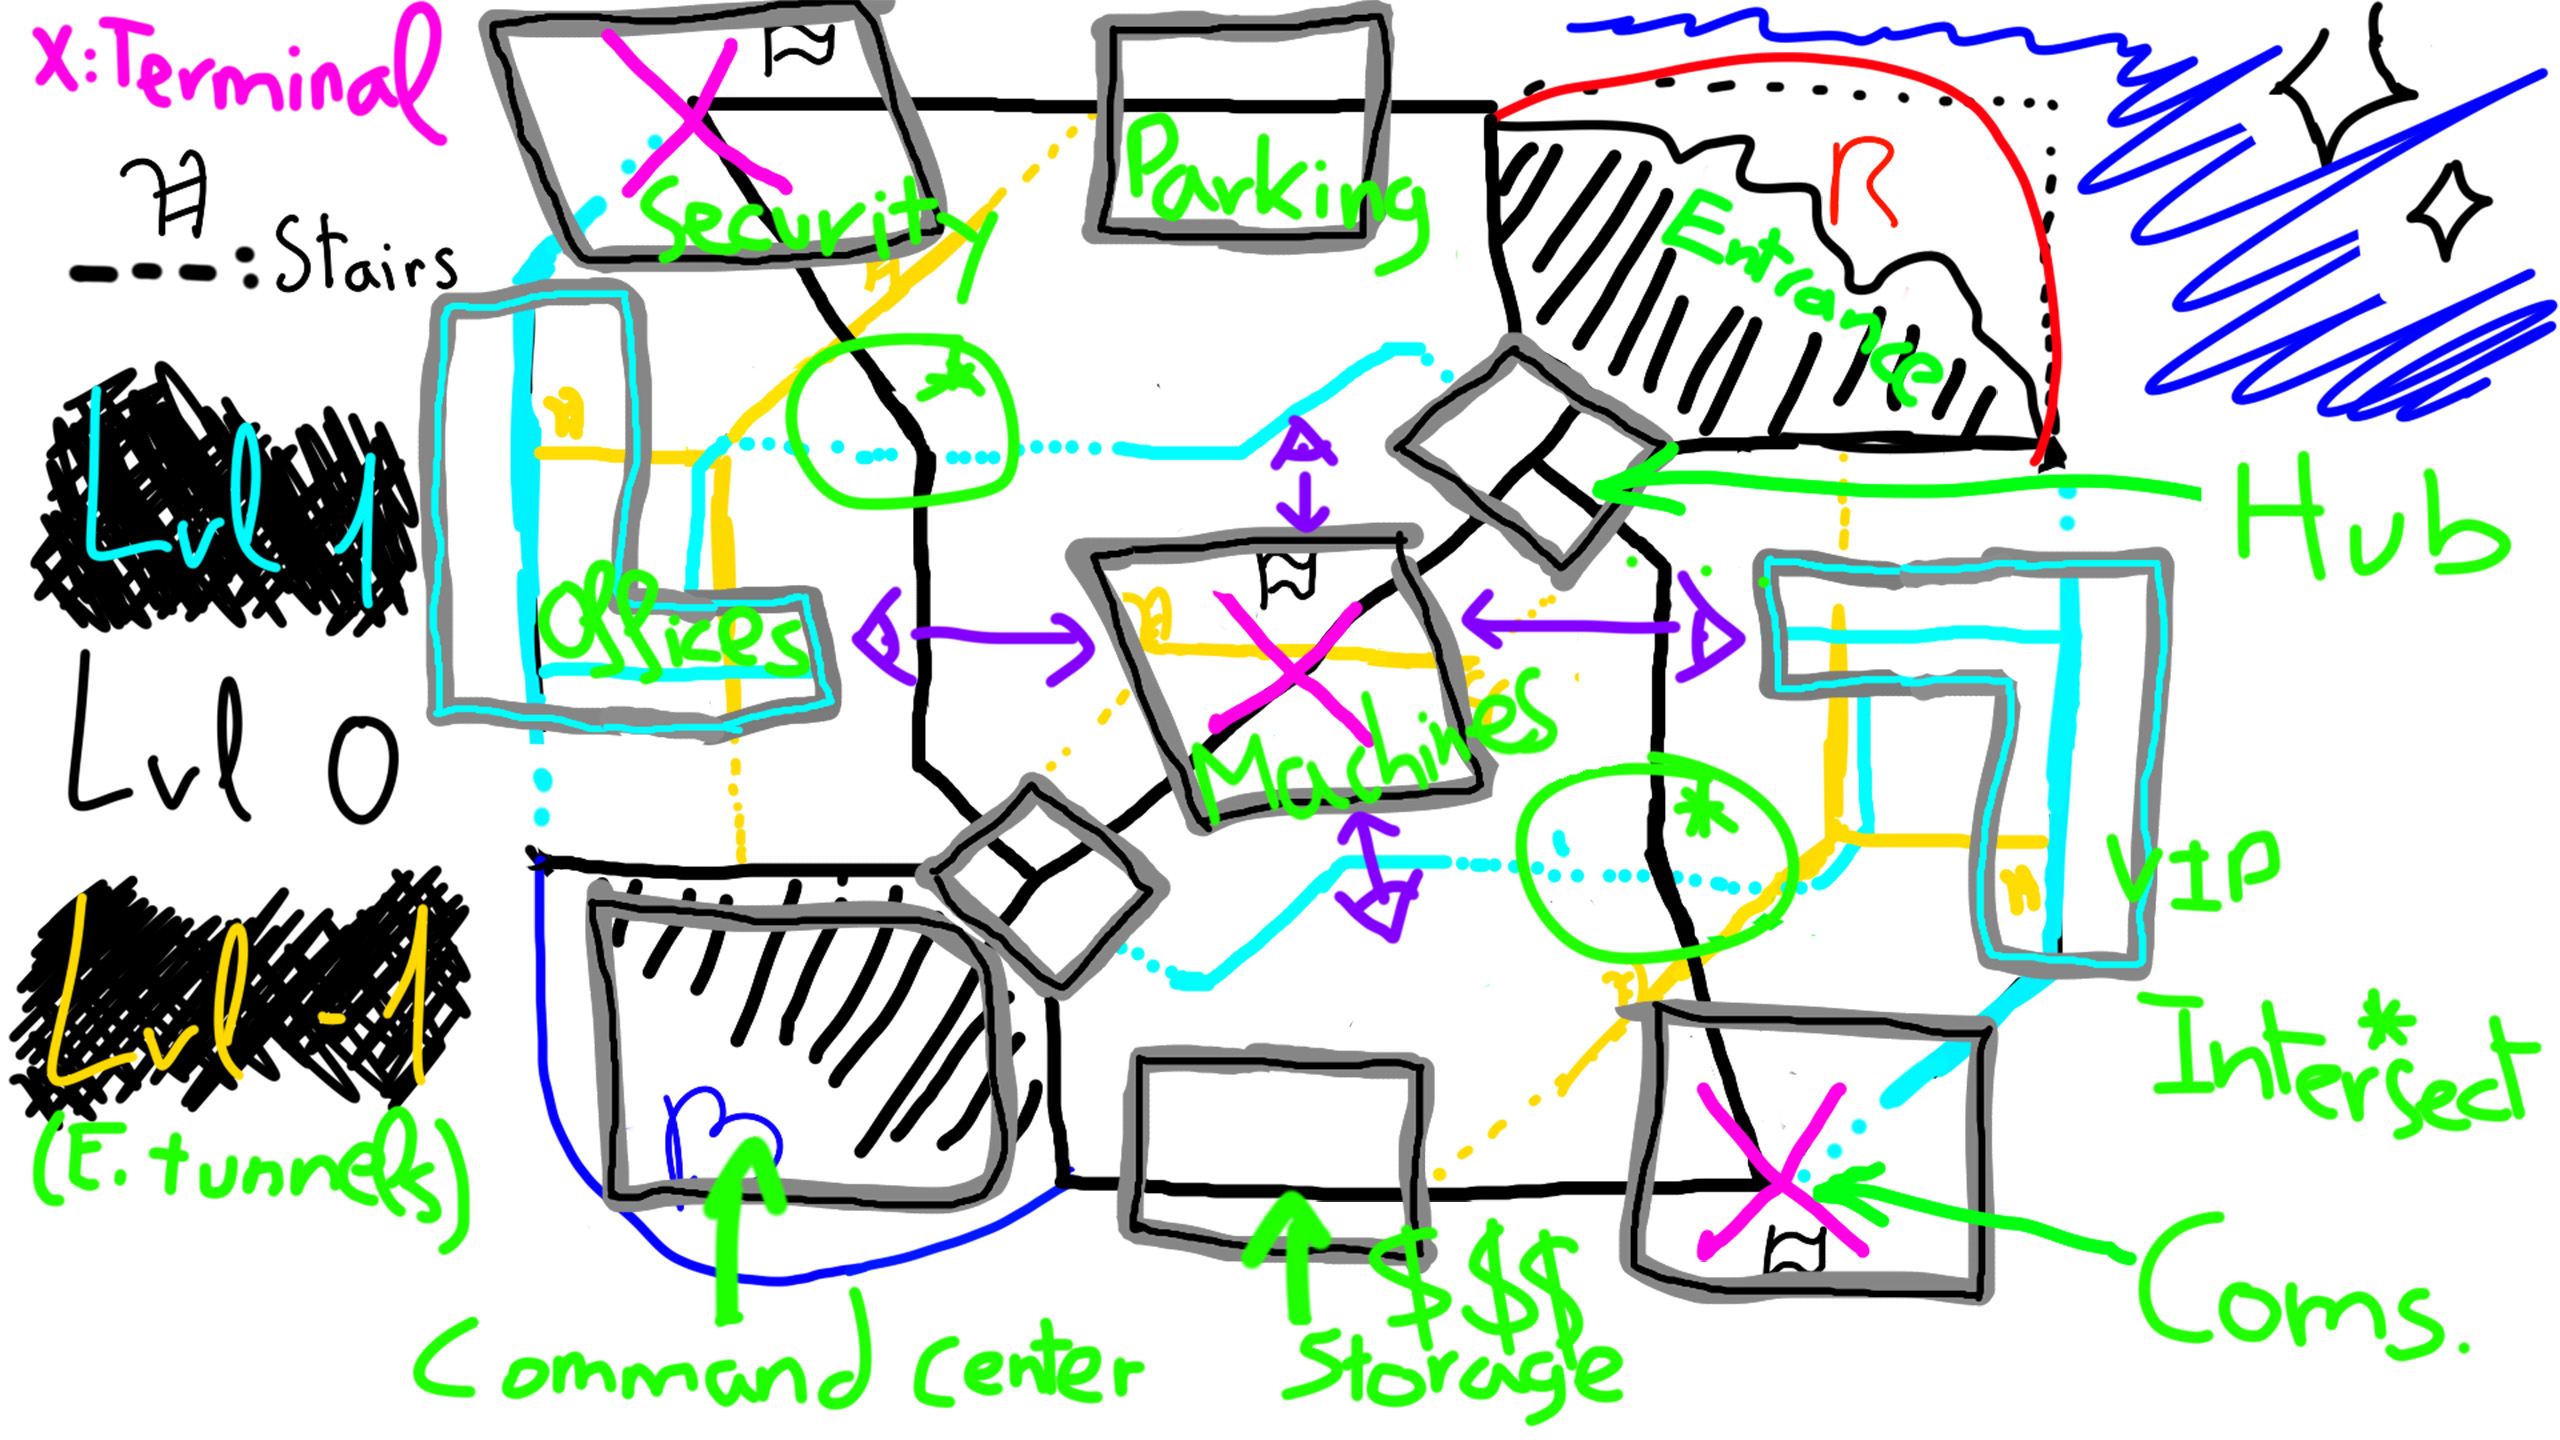 X:Terminal
---:Stairs
Lvl 1
Lvl 0
Lvl -1
(E. tunnels)
Security
Parking
Entrance
R
Hub
Offices
Machines
*
*
VIP
* Intersect
B
Command Center
$$$
Storage
Coms.